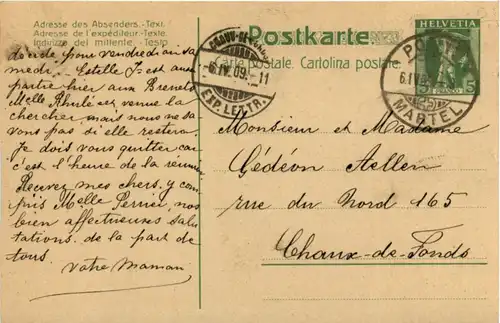 Adresse des Absenders.-Text.
Adresse de l'expéditeur.-Texte.
Indirizzo del mittente.-Testo.
Postkarte
Carte postale. Cartolina postale.
HELVETIA
5 5
FRANCO
CHAUX-DE-FONDS
-6.IV.09.-11
EXP. LETTR.
PONTS
6.IV
MARTEL
décide pour vendredi ou sa
medi. Estelle J. est au
partie hier aux Brenets
Melle est venue la
chercher, mais nous ne sa
vons pas si elle restera
Je dois vous quitter car
c'est l'heure de la réunion
Recevez mes chers, y com
pris Melle Perrier, nos
bien affectueuses salu
tations de la part de
tous.
Votre Maman
Monsieur et Madame
Gédéon Aellen
rue du Nord 165
Chaux-de-Fonds